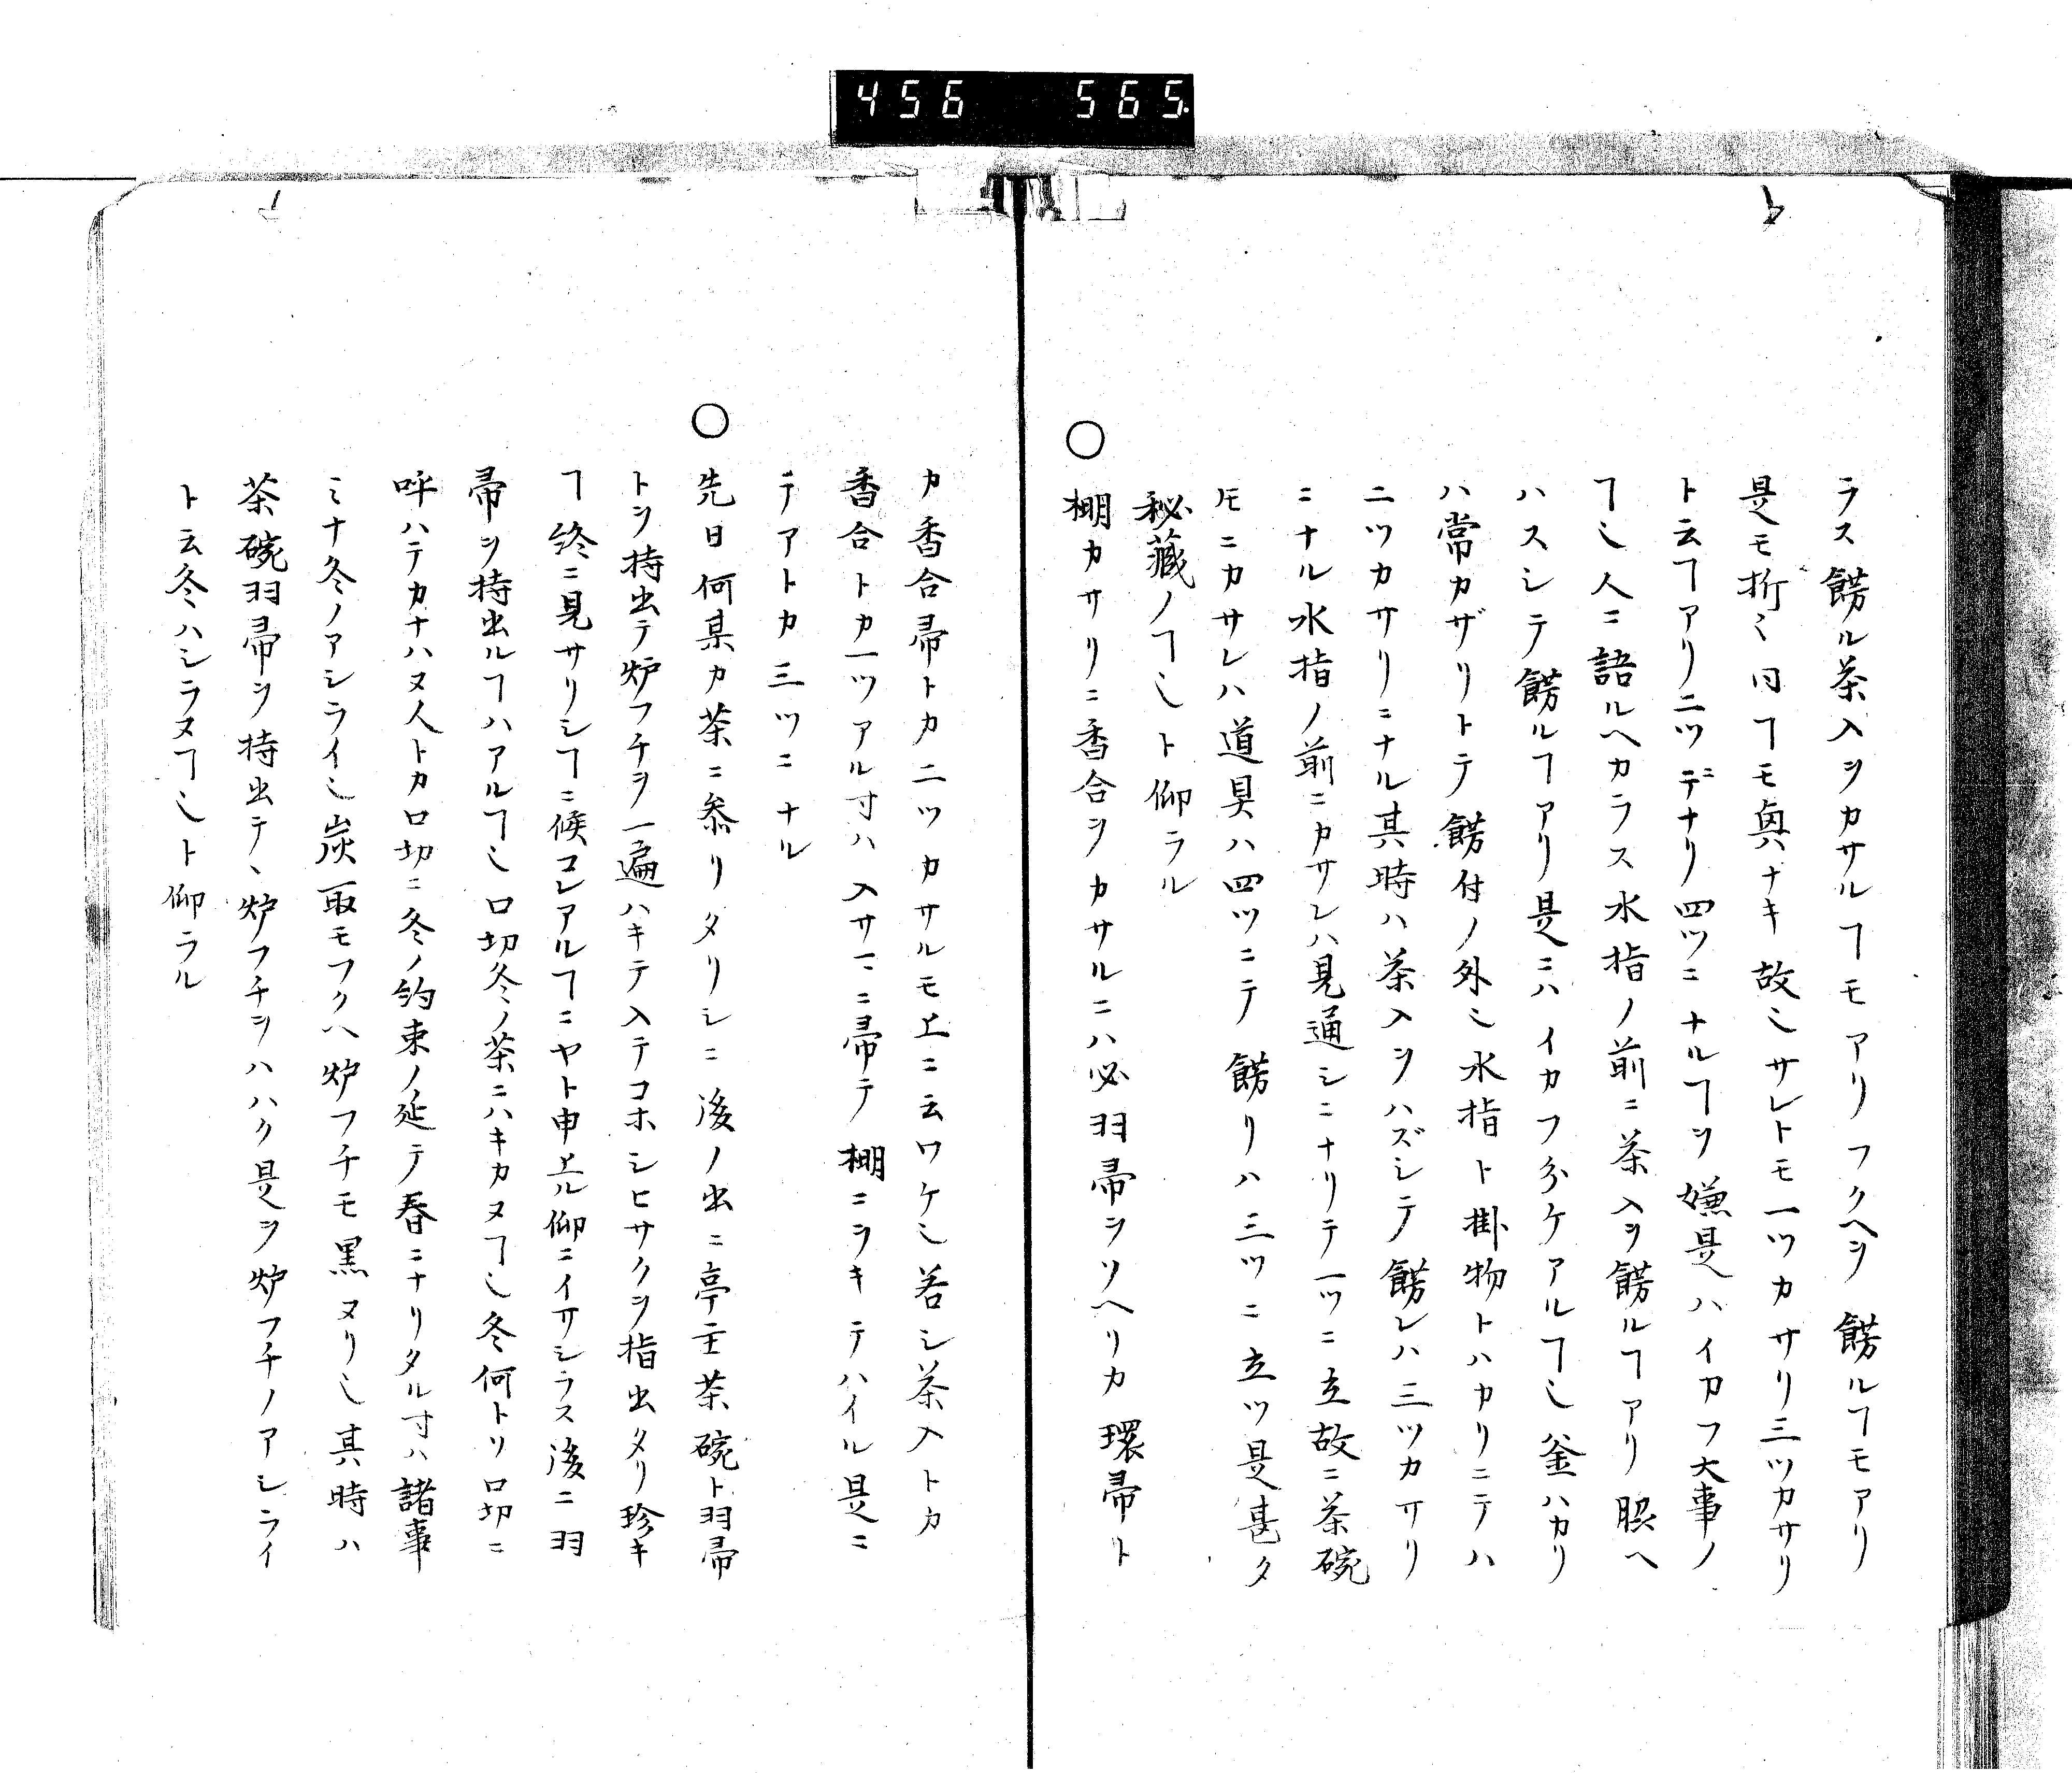 456 565
ラス餝ル茶入ヲカサルヿモアリフクヘヲ餝ルヿモアリ
是モ折ミ同ヿモ奥ナキ故ミサレトモ一ツカサリ三ツカサリ
ト云ヿアリ二ツデナリ四ツニナルヿヲ嫌是ハイカフ大事ノ
ヿ乄人ニ語ルヘカラス水指ノ前ニ茶入ヲ餝ルヿアリ脵へ
ハスシテ餝ルヿアリ是ニハイカフ分ケアルヿ乄釜ハカリ
ハ常カザリトテ餝付ノ外乄水指ト掛物トハカリニテハ
二ツカサリニナル其時ハ茶入ヲハズシテ餝レハ三ツカサリ
ニナル水指ノ前ニカサレハ見通シニナリテ一ツニ立故ニ茶碗
𪜈ニカサレハ道具ハ四ツニテ餝リハ三ツニ立ツ是甚タ
秘蔵ノヿ乄ト仰ラル
○棚カサリニ香合ヲカサルニハ必羽帚ヲソヘリカ環帚ト
カ香合帚トカ二ツカサルモ上ニ云ワケ乄若シ茶入トカ
香合トカ一ツアル寸ハ入サマニ帚テ棚ニヲキテハイル是ニ
テアトカ三ツニナル
○先日何某カ茶ニ参リタリシニ後ノ出ニ亭主茶碗ト羽帚
トヲ持出テ炉フチヲ一遍ハキテ入テコホシヒサクヲ指出タリ珍キ
ヿ終ニ見サリシヿニ候コレアルヿニヤト申上ル仰ニイサシラス後ニ羽
帚ヲ持出ルヿハアルヿ乄口切冬ノ茶ニハキカヌヿ乄冬何トソ口切ニ
呼ハテカナハヌ人トカ口切ニ冬ノ約束ノ延テ春ニナリタル寸ハ諸事
ミナ冬ノアシライ乄炭取モフクヘ炉フチモ黒ヌリ乄其時ハ
茶碗羽帚ヲ持出テヽ炉フチヲハハク是ヲ炉フチノアシライ
ト云冬ハシラヌヿ乄ト仰ラル